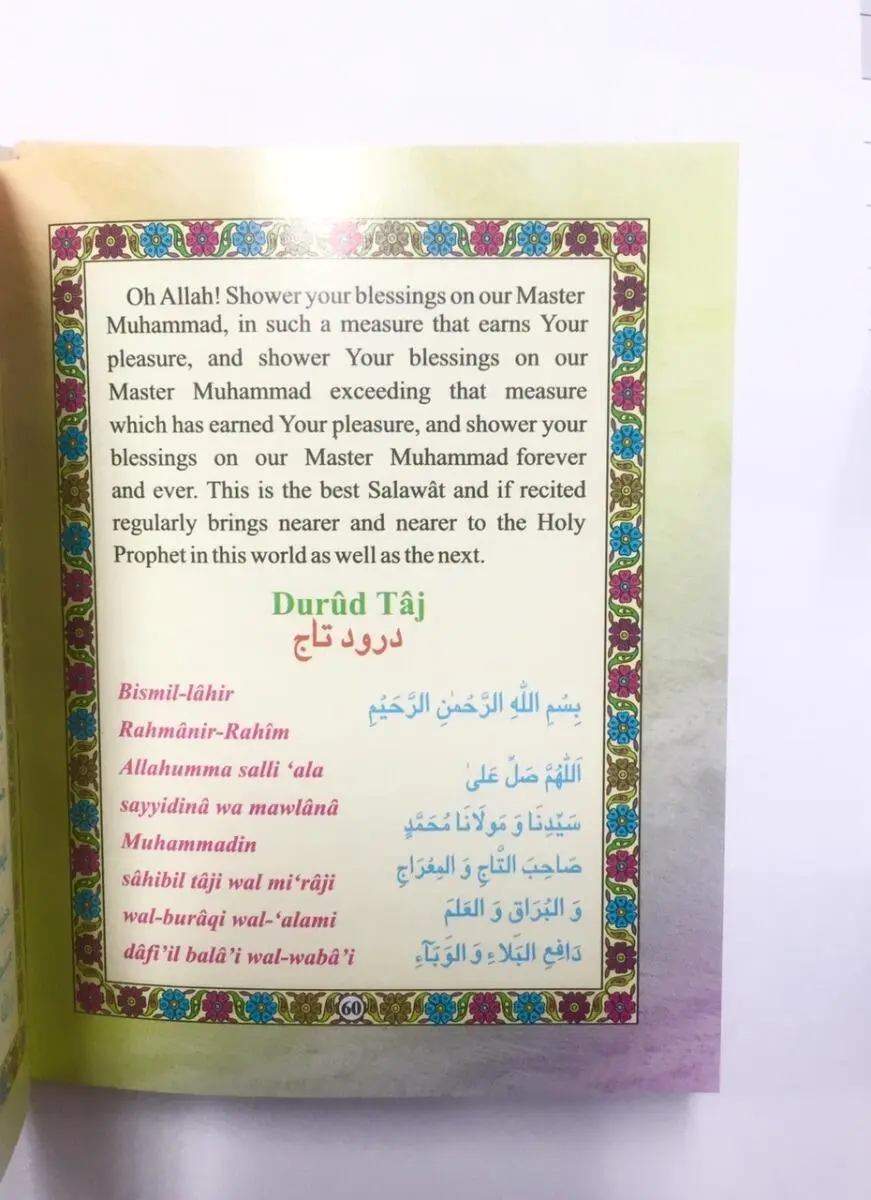 Oh Allah! Shower your blessings on our Master
Muhammad, in such a measure that earns Your
pleasure, and shower Your blessings on our
Master Muhammad exceeding that measure
which has earned Your pleasure, and shower your
blessings on our Master Muhammad forever
and ever. This is the best Salawât and if recited
regularly brings nearer and nearer to the Holy
Prophet in this world as well as the next.
Durûd Tâj
درود تاج
Bismil-lâhir
Rahmânir-Rahîm
بِسْمِ اللّٰهِ الرَّحْمٰنِ الرَّحَيْمِ
Allahumma salli ‘ala
اَللّٰهُمَّ صَلِّ عَلىٰ
sayyidinâ wa mawlânâ
Muhammadin
سَيِّدِنَا وَ مَولَانَا مُحَمَّدٍ
sâhibil tâji wal mi‘râji
صَاحِبَ التَّاجِ وَ المِعْرَاجِ
wal-burâqi wal-‘alami
وَ البُرَاق وَ العَلَمَ
dâfi’il balâ’i wal-wabâ’i
دَافِعِ البَلَاءِ وَ الوَبَآءِ
60